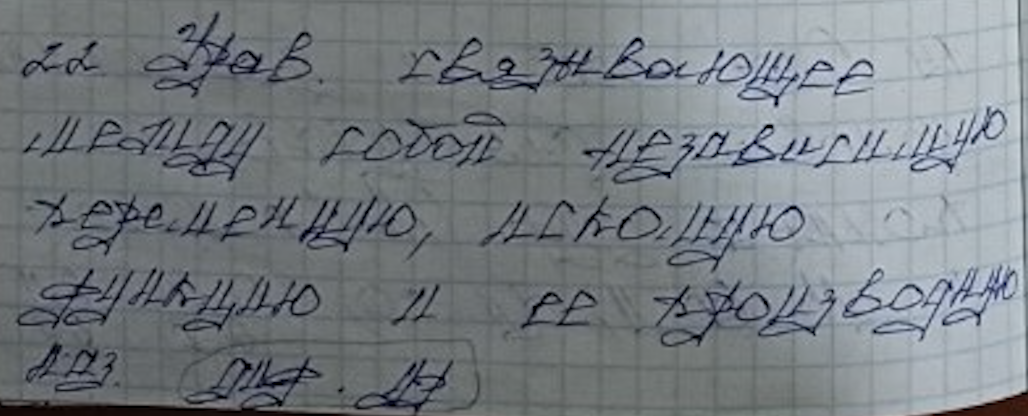 22 Урав. связывающее
между собой независимую
переменную, искомую
функцию и ее производную
наз. диф. ур